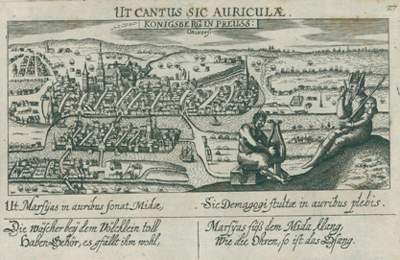 UT CANTUS SIC AURICULÆ.
KONIGSBERG IN PREUSS:
Ut Marsyas in auribus sonat Midæ,
Sic Demagogi stultæ in auribus plebis.
Die wäscher beÿ dem Völcklein toll
Haben Gehör, es gfällt ihm wohl,
Marsyas süß dem Mida klang,
Wie die Ohren, so ist das Gsang.